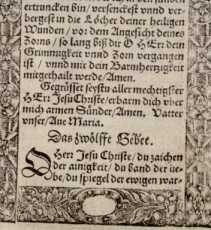 ertruncken bin/ versenckest vnnd ver-
bergest in die Löcher deiner heiligen
Wunden/ vor dem Angesicht deines
Zorns/ so lang biß dir O HErr dein
Grimmigkeit vnnd Zorn vergangen
ist/ vnnd mir dein Barmhertzigkeit
mitgetheilt werde/Amen.
Gegrüsset seystu aller mechtigster
HErr JesuChriste/erbarm dich vber
mich armen Sünder/Amen. Vatter
vnser/Aue Maria.
Das zwölffte Gebet.
O Herr Jesu Christe/ du zaichen
der ainigkeit/ du band der lie-
be/du spiegel der ewigen war-